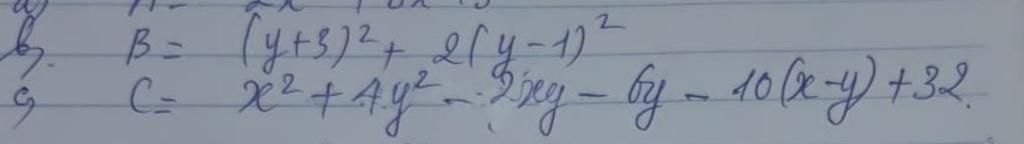 b, B = (y+3)² + 2(y-1)²
c, C = x² + 4y² - 2xy - 6y - 10(x-y) + 32.